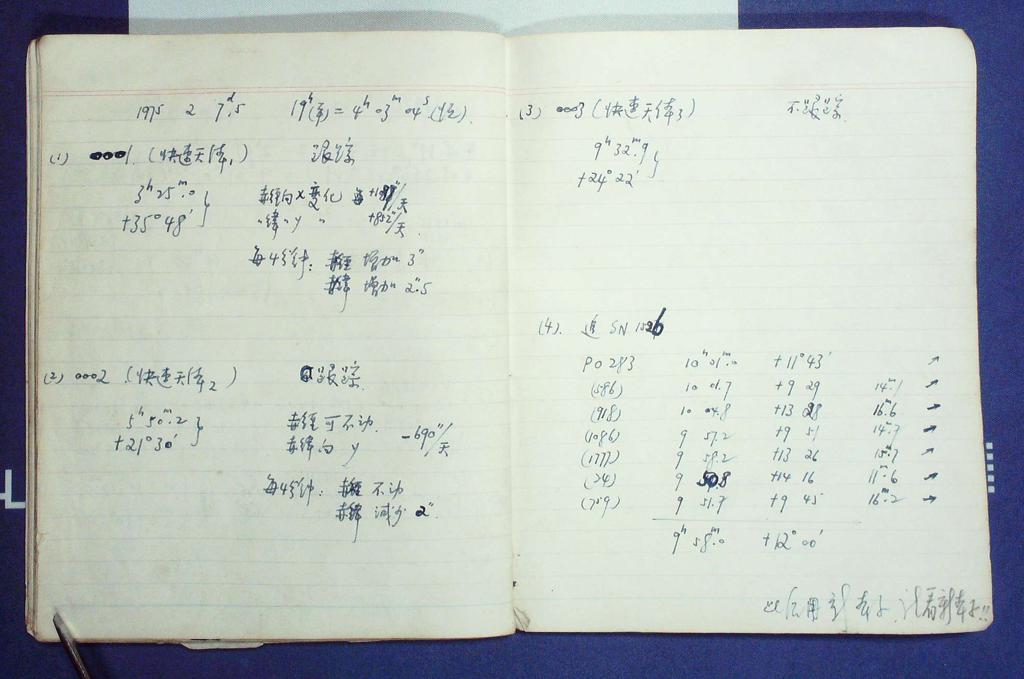 1975 2 7ᵈ.5 19ʰ(京) = 4ʰ 03ᵐ 04ˢ (恒)
(1) 0001 (快速天体₁) 跟踪
3ʰ25ᵐ.0
+35°48′
赤經向 x 变化 每 /天
〃緯〃 y 〃 +852″/天
每4分钟: 赤經 增加 3″
赤緯 增加 2″.5
(2) 0002 (快速天体₂) 跟踪
5ʰ50ᵐ.2
+21°30′
赤經可不动
赤緯向 y -690″/天
每4分钟: 赤經 不动
赤緯 減少 2″
(3) 0003 (快速天体₃) 不跟踪
9ʰ32ᵐ.9
+24°22′
(4). 追 SN 1526
PO 283 10ʰ 01ᵐ.0 +11°43′ ↗
(586) 10 01.7 +9 29 14ᵐ.1 →
(918) 10 04.8 +13 28 16ᵐ.6 →
(1086) 9 57.2 +9 51 14ᵐ.7 →
(1777) 9 58.2 +13 26 15ᵐ.7 ↗
(24) 9 50.8 +14 16 11ᵐ.6 ↗
(759) 9 51.7 +9 45 16ᵐ.2 →
9ʰ 58ᵐ.0 +12°00′
以后用新本子, 看新本子!!